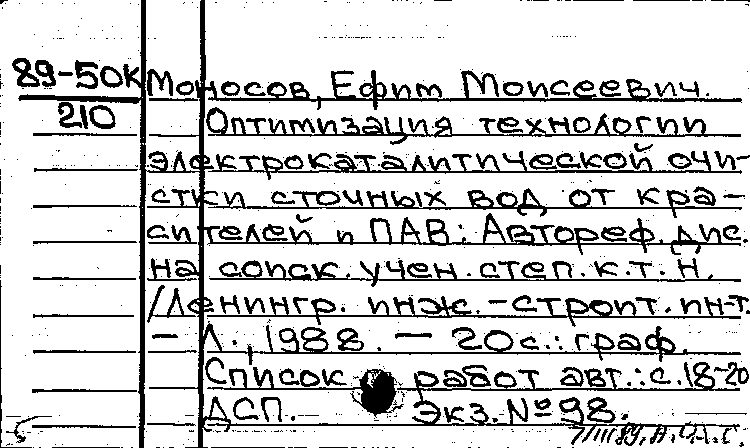 89-50К Моносов, Ефим Моисеевич.
210 Оптимизация технологии
электрокаталитической очи-
стки сточных вод от кра-
сителей и ПАВ: Автореф. дис.
на соиск. учен. степ. к. т. н.
/Ленингр. инж.-строит. ин-т.
- Л., 1988. - 20 с.: граф.
Список работ авт.: с. 18-20
ДСП. Экз. № 98.